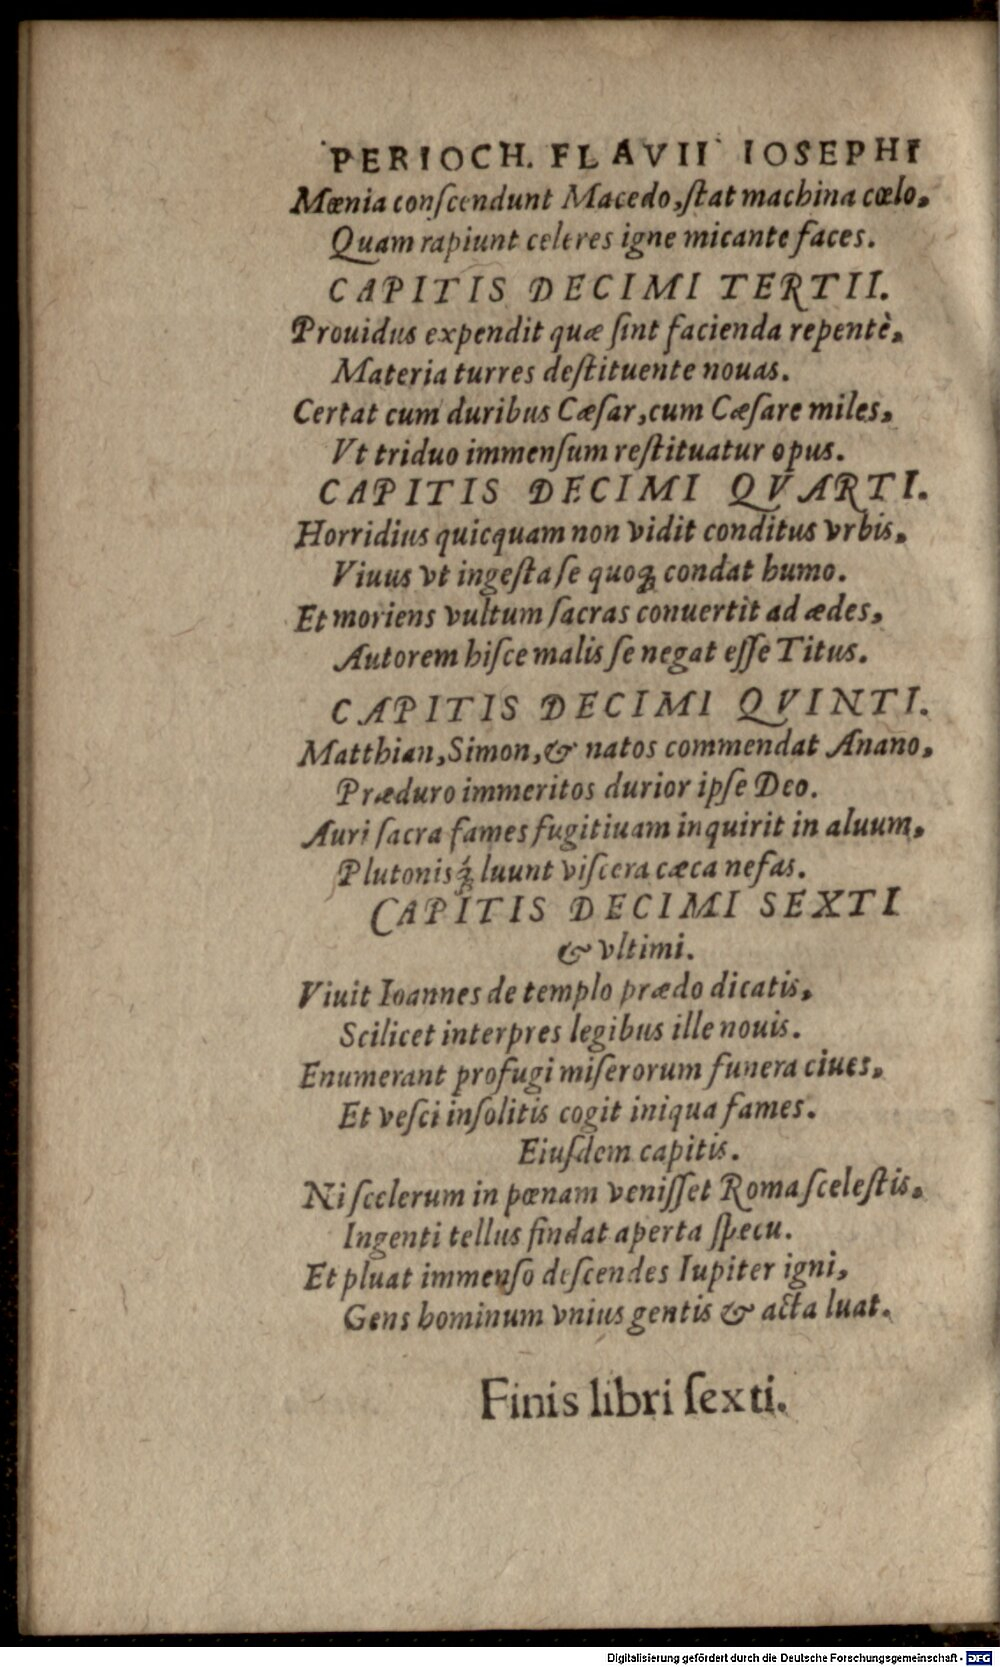 PERIOCH. FLAVII IOSEPHI
Mœnia conſcendunt Macedo, ſtat machina cœlo,
Quam rapiunt celeres igne micante faces.
CAPITIS DECIMI TERTII.
Prouidus expendit quæ ſint facienda repentè,
Materia turres deſtituente nouas.
Certat cum duribus Cæſar, cum Cæſare miles,
Vt triduo immenſum reſtituatur opus.
CAPITIS DECIMI QVARTI.
Horridius quicquam non vidit conditus vrbis,
Viuus vt ingeſta ſe quoqꝫ condat humo.
Et moriens vultum ſacras conuertit ad ædes,
Autorem hiſce malis ſe negat eſſe Titus.
CAPITIS DECIMI QVINTI.
Matthian, Simon, & natos commendat Anano,
Præduro immeritos durior ipſe Deo.
Auri ſacra fames fugitiuam inquirit in aluum,
Plutonisqꝫ́ luunt viſcera cæca nefas.
CAPITIS DECIMI SEXTI
& vltimi.
Viuit Ioannes de templo prædo dicatis,
Scilicet interpres legibus ille nouis.
Enumerant profugi miſerorum funera ciues,
Et veſci inſolitis cogit iniqua fames.
Eiuſdem capitis.
Ni ſcelerum in pœnam veniſſet Roma ſceleſtis,
Ingenti tellus findat aperta ſpecu.
Et pluat immenſo deſcendes Iupiter igni,
Gens hominum vnius gentis & acta luat.
Finis libri ſexti.
Digitalisierung gefördert durch die Deutsche Forschungsgemeinschaft - DFG